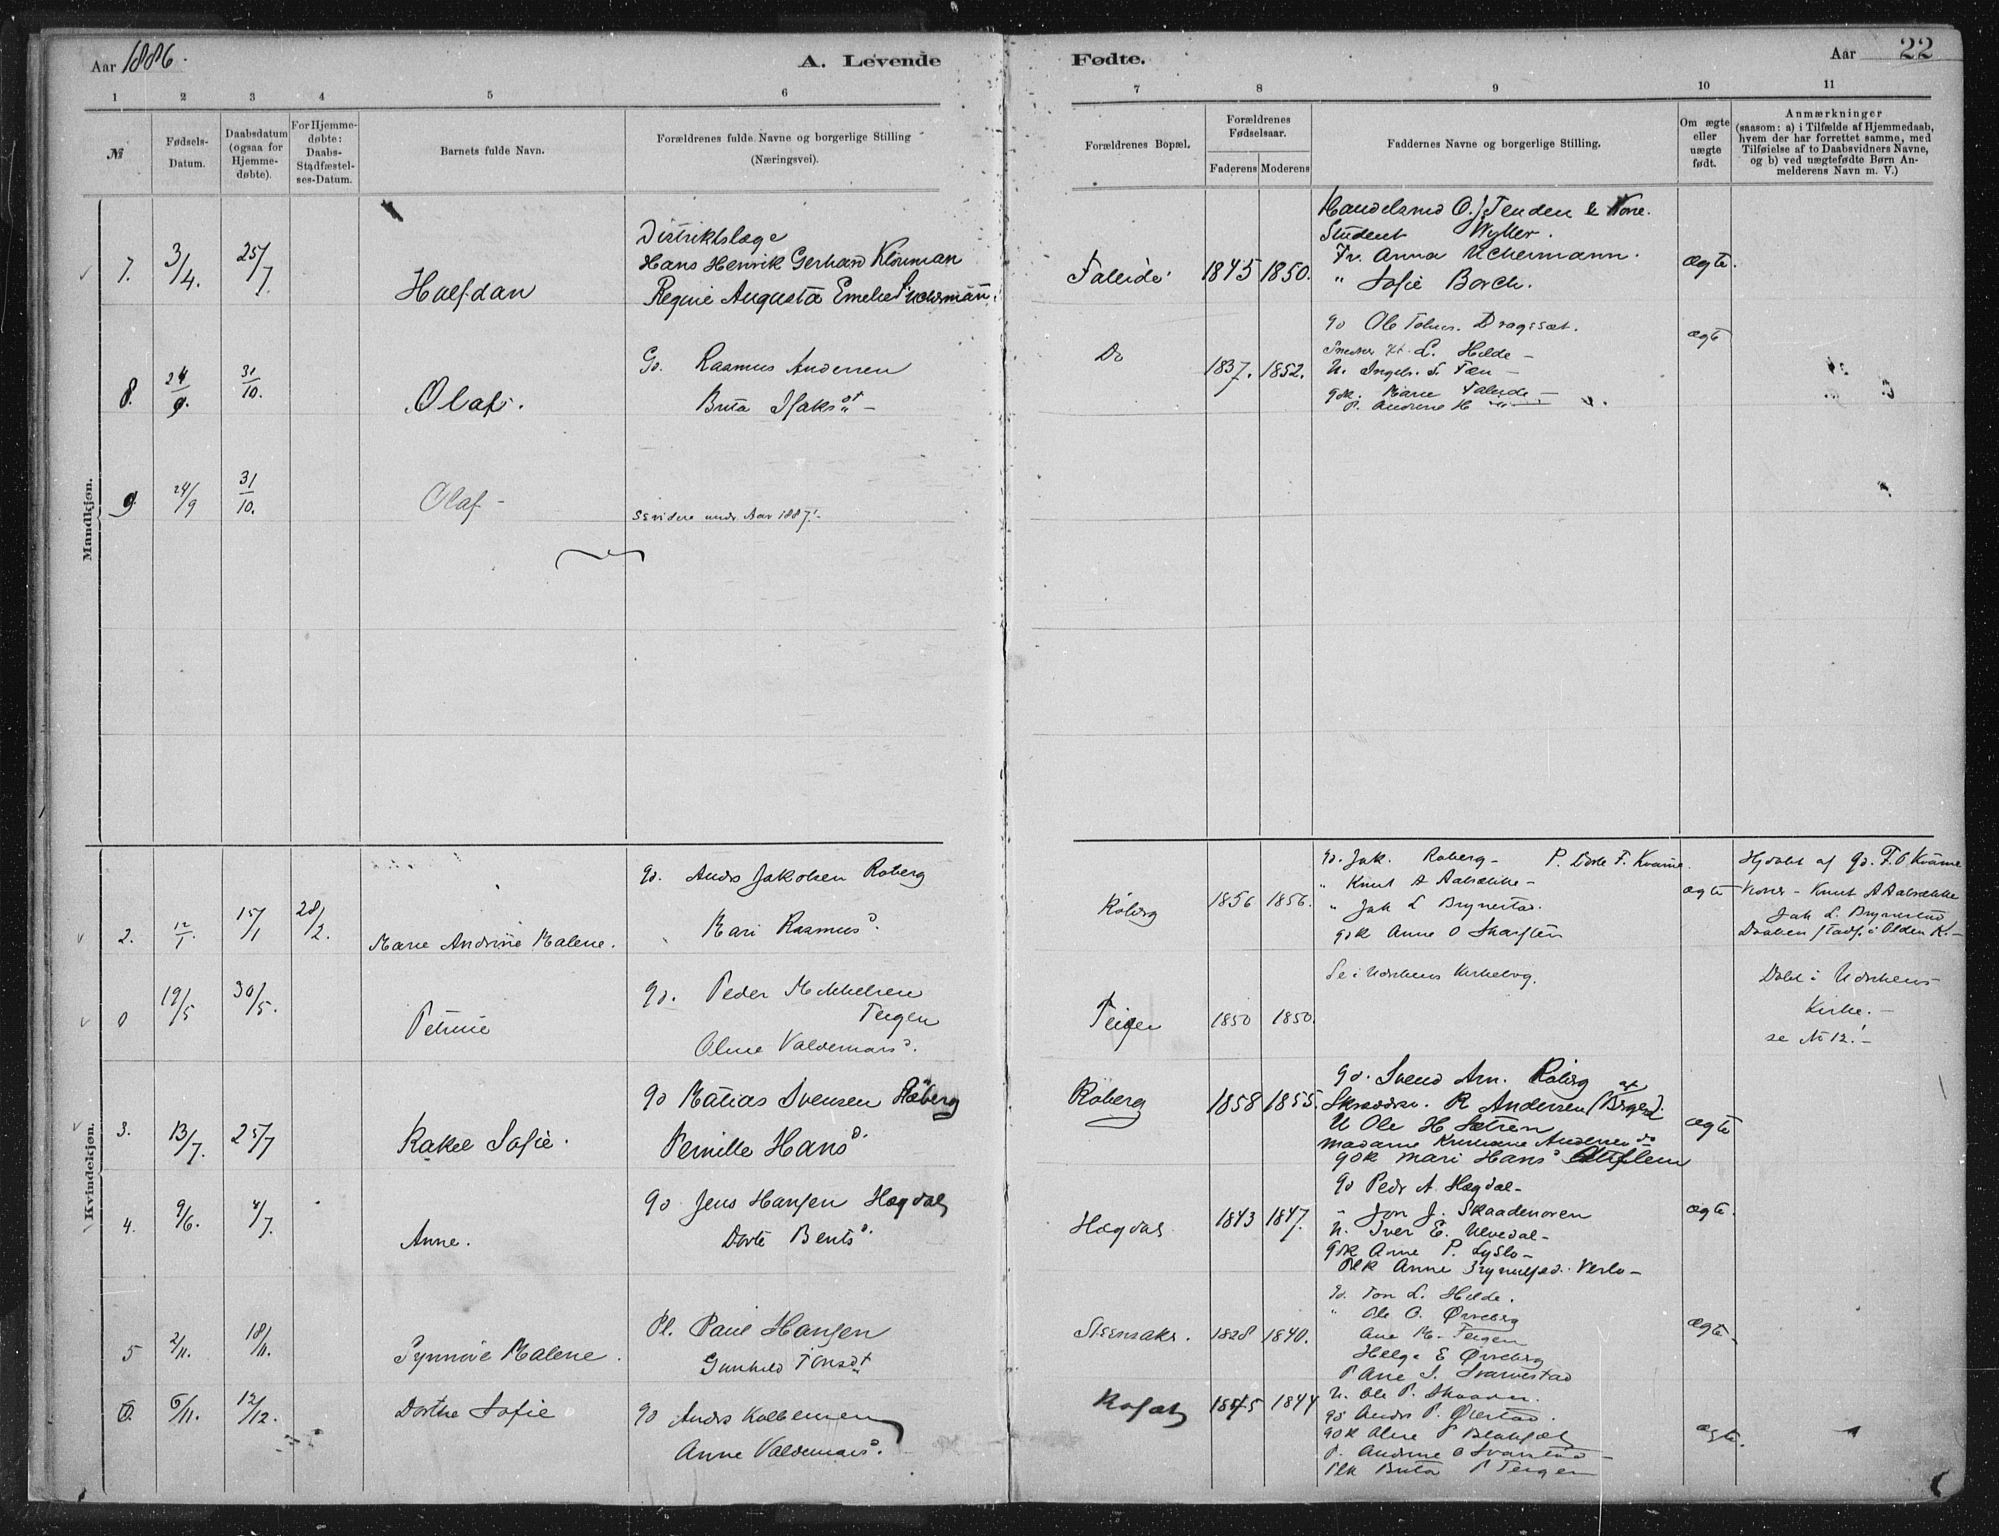 Aar 1886.
A. Levende
Fødte.
Aar 22
1 2 3 4 5 6 7 8 9 10 11
№
Fødsels-
Datum.
Daabsdatum
(ogsaa for
Hjemme-
døbte).
For Hjemme-
døbte:
Daabs-
Stadfæstel-
ses-Datum.
Barnets fulde Navn.
Forældrenes fulde Navne og borgerlige Stilling
(Næringsvei).
Forældrenes Bopæl.
Forældrenes
Fødselsaar.
Faderens Moderens
Faddernes Navne og borgerlige Stilling.
Om ægte
eller
uægte
født.
Anmærkninger
(saasom: a) i Tilfælde af Hjemmedaab,
hvem der har forrettet samme, med
Tilføielse af to Daabsvidners Navne,
og b) ved uægtefødte Børn An-
melderens Navn m. V.)
Mandkjøn.
7. 3/4. 25/7 Halfdan
Distriktslæge
Hans Henrik Gerhard Klouman
Regine Augusta Emelie
Faleide 1845 1850.
Handelsmd O. J. Tenden & Kone.
Student Wyller.
Fr. Anna Uchermann.
" Sofie Borch.
ægte.
8. 24/9. 31/10. Olaf.
Gd. Rasmus Andersen
Do 1837. 1852.
gd Ole Dragsæt.
L. Hilde -
U. Ingeb. S. Tæn -
gdk. Marie Faleide -
P. Andrine H
ægte
9 24/9 31/10. Olaf -
se videre under Aar 1887!-
Kvindekjøn.
2. 12/1. 15/1 28/2. Marie Andrine Malene.
gd. Anders Jakobsen Roberg
Mari Rasmusd.
Roberg 1856 1856.
gd. Jak. Roberg - P. Dorte F. Kvame.
" Knut A Aabrekke -
" Jak L Brynestad.
gdk Anne O
ægte
Hjdøbt af gd. F. O Kvame
Knut A Aabrekke
Jak L. Brynestad
Daaben stadf. i Olden K. -
0 19/5 30/5. Petrine
gd. Peder Mikkelsen
Teigen
Oline Valdemarsd.
Teigen 1850 1850.
Se i Udvikens Kirkebog.
Døbt i Udvikens
Kirke. -
se No 12!-
3. 13/7. 25/7 Rakel Sofie.
gd Matias Svensen Roberg
Pernille Hansd.
Roberg 1858 1855.
gd. Svend Arn. Roberg
R Andersen (Bergen).
U Ole H Sætren
Madame Andersen do
gdk Mari Hansd
ægte
4. 9/6. 4/7. Anne.
gd Jens Hansen Hægdal
Dorte Bentsd.
Hægdal 1843 1847.
gd Pedr A. Hægdal -
" Jon J. Skaadenoren
U. Iver E. Ulvedal -
gdk Anne P. Lyslo -
Plk Anne Brynulfsd. Verlo -
ægte.
5 2/11. 18/11. Synnøve Malene.
Pl. Paul Hansen
Gunhild Tonsdt
Steensaker. 1828 1840.
gd. Ton L. Hilde.
" Ole O. Øvreberg
Ane M. Teigen
Helge E Øvreberg
P Ane S. Svarvestad
ægte.
6. 6/11. 12/12. Dorthe Sofie
gd Anders Kolbensen
Anne Valdemarsd.
1845 1844
U. Ole P. Skaaden.
gd Anders P. Ølestad.
gdk Oline P Blakset
P. Andrine O Svarstad -
Plk Brita P Teigen
ægte.